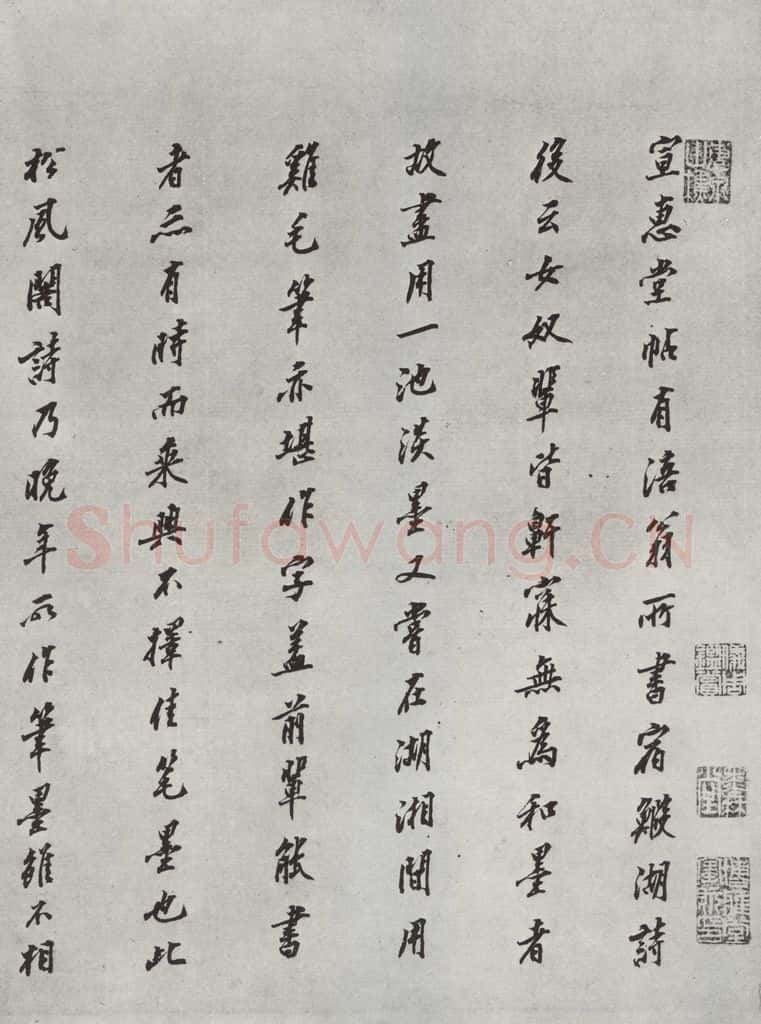 宣惠堂帖有涪翁所書宿觙湖詩
後云女奴輩皆鼾寐無為和墨者
故盡用一池淡墨又嘗在湖湘間用
雞毛筆亦堪作字蓋前輩能書
者亦有時而乘興不擇佳笔墨也此
松風閣詩乃晚年所作筆墨雖不相
Shufawang.CN